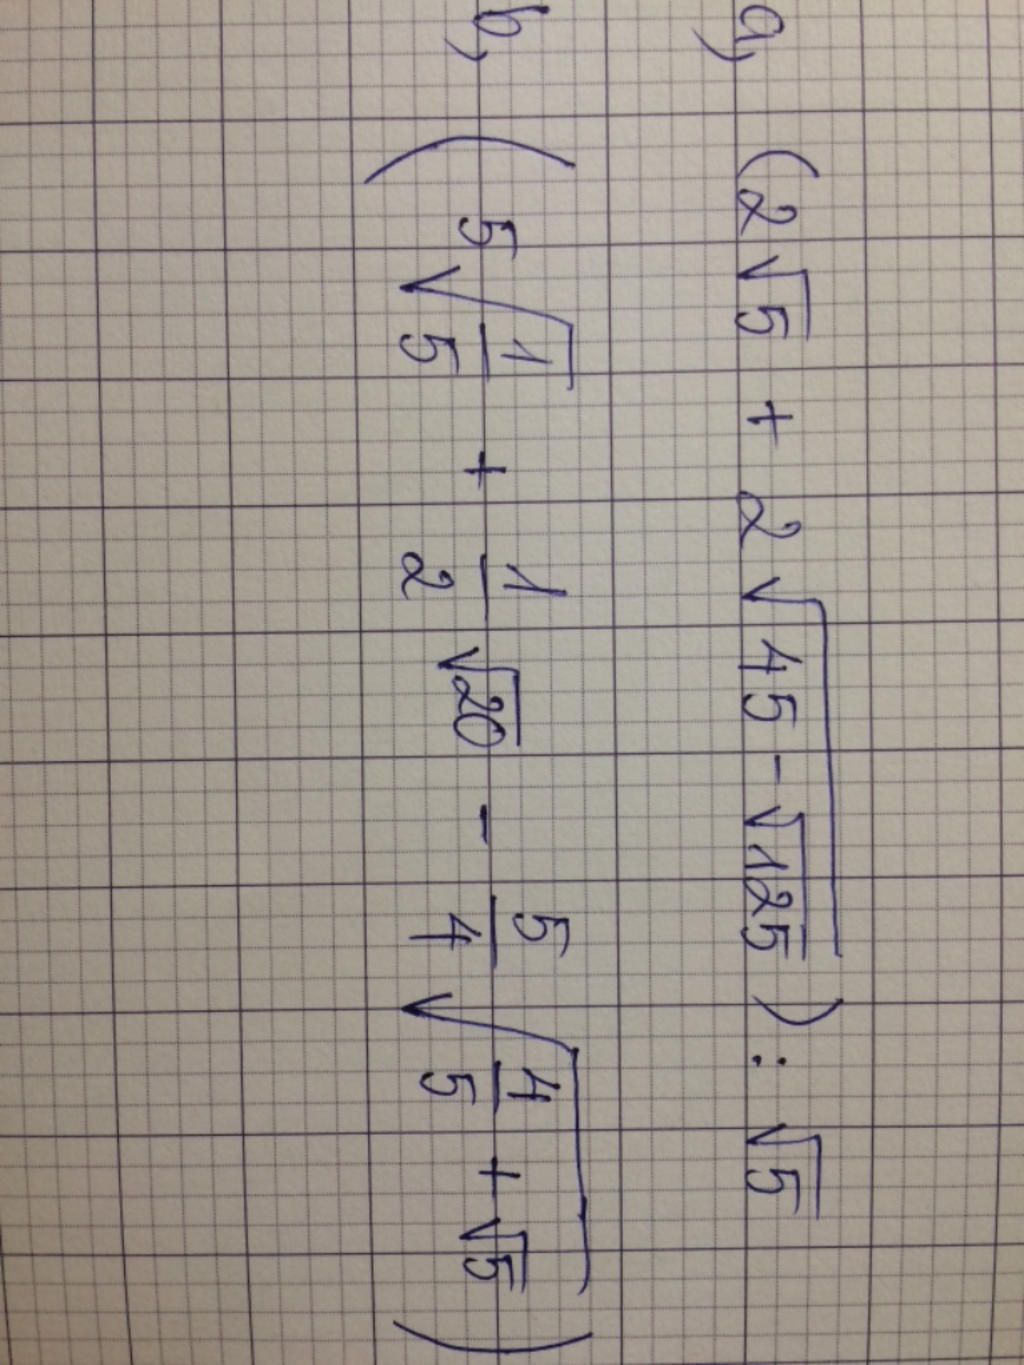 a, (2√5 + 2√(45 - √125)) : √5
b, (5√(1/5) + 1/2 √20 - 5/4 √(4/5 + √5))